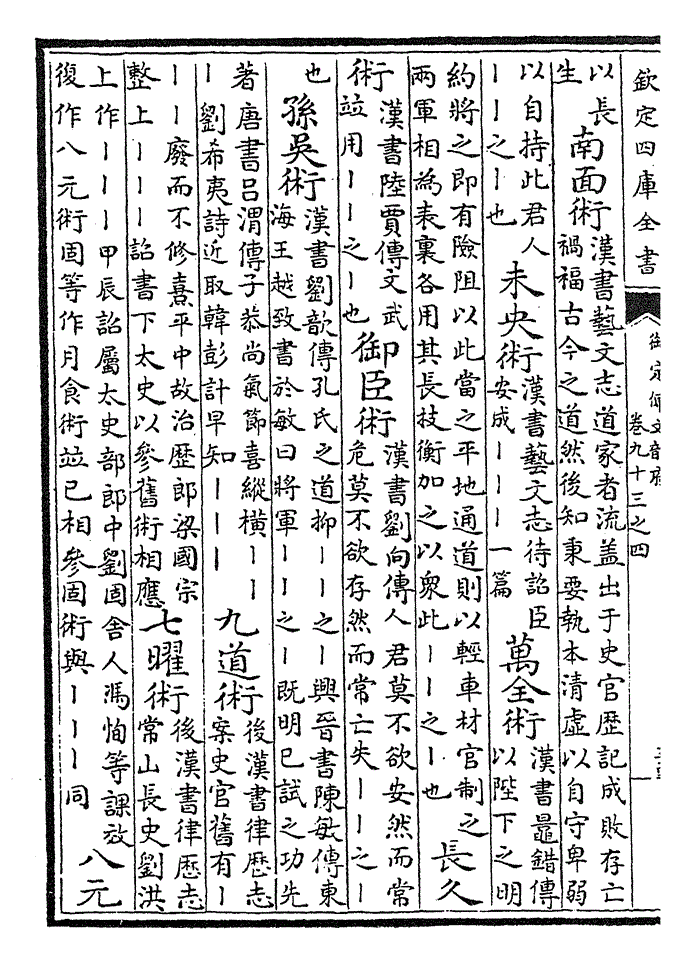 欽定四庫全書
卷九十三之四
以長
生
南面術
漢書藝文志道家者流盖出于史官歴記成敗存亡
禍福古今之道然後知秉要執本清虛以自守卑弱
以自持此君人
丨丨之丨也
未央術
漢書藝文志待詔臣
安成丨丨丨一篇
萬全術
漢書鼂錯傳
以陛下之明
約將之即有險阻以此當之平地通道則以輕車材官制之
兩軍相為表裏各用其長技衡加之以衆此丨丨之丨也
長久
術
漢書陸賈傳文武
竝用丨丨之丨也
御臣術
漢書劉向傳人君莫不欲安然而常
危莫不欲存然而常亡失丨丨之丨
也
孫吳術
漢書劉歆傳孔氏之道抑丨丨之丨興晉書陳敏傳東
海王越致書於敏曰將軍丨丨之丨既明已試之功先
著唐書呂渭傳子恭尚氣節喜縱橫丨丨
丨劉希夷詩近取韓彭計早知丨丨丨
九道術
後漢書律歴志
案史官舊有丨
丨丨廢而不修熹平中故治歴郎梁國宗
整上丨丨丨詔書下太史以參舊術相應
七曜術
後漢書律歴志
常山長史劉洪
上作丨丨丨甲辰詔屬太史部郎中劉固舍人馮恂等課效
復作八元術固等作月食術竝已相參固術與丨丨丨同
八元